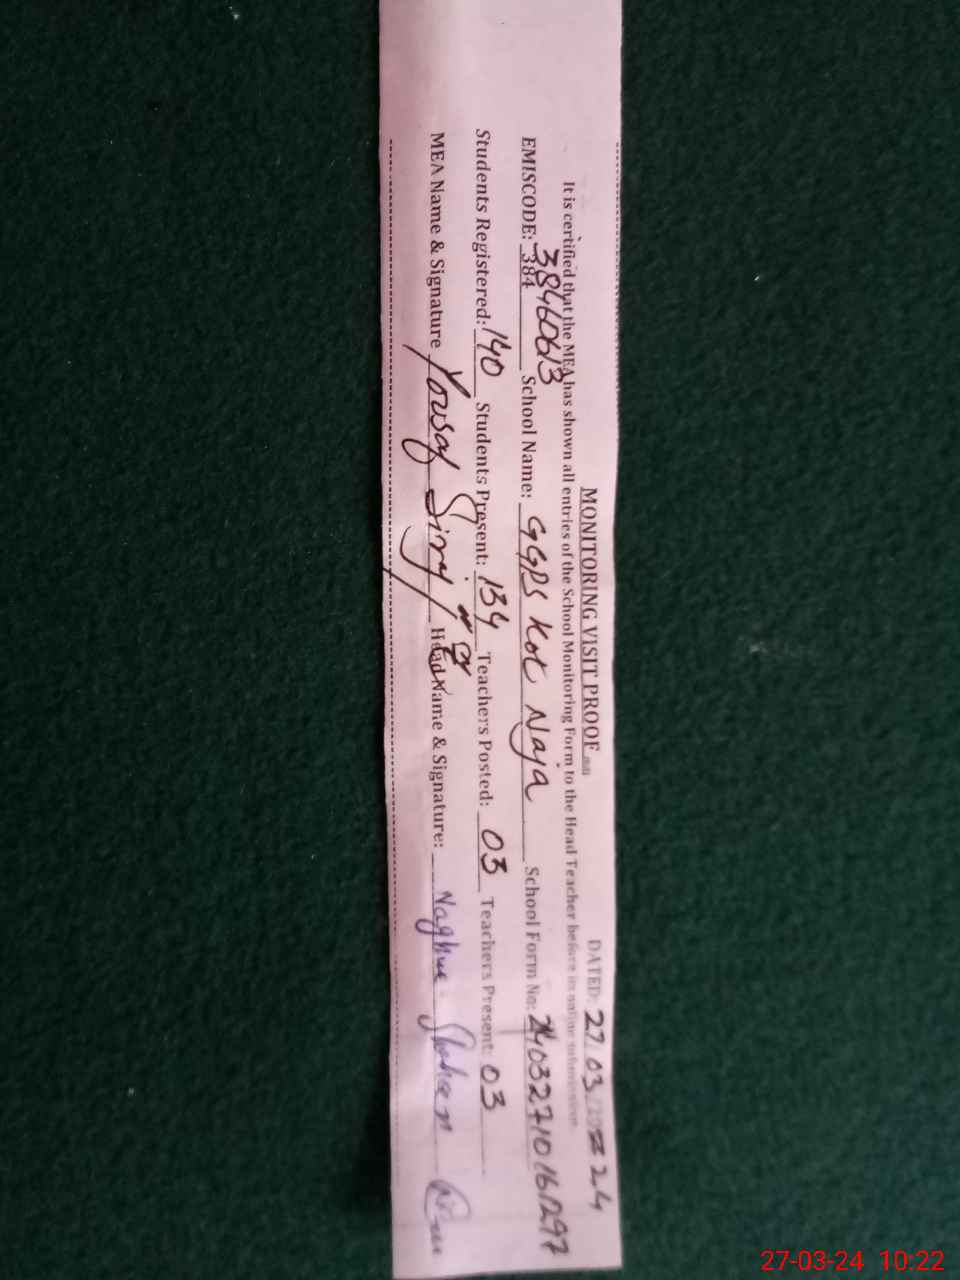 MONITORING VISIT PROOF
DATED: 27 03 24
It is certified that the MEA has shown all entries of the School Monitoring Form to the Head Teacher before its online submission.
EMISCODE: 384 38460613 School Name: GGPS Kot Naja School Form No:
Students Registered: 140 Students Present: 134 Teachers Posted: 03 Teachers Present: 03
MEA Name & Signature Yousaf Head Name & Signature: Shaheen
27-03-24 10:22